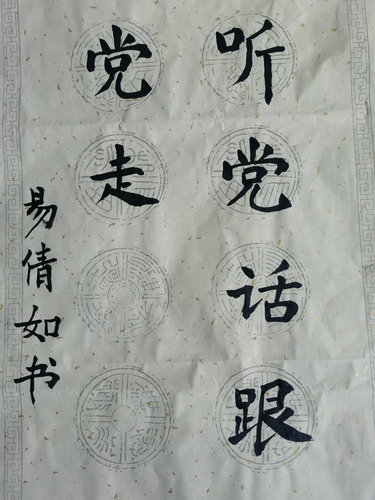 听党话跟
党走
易倩如书